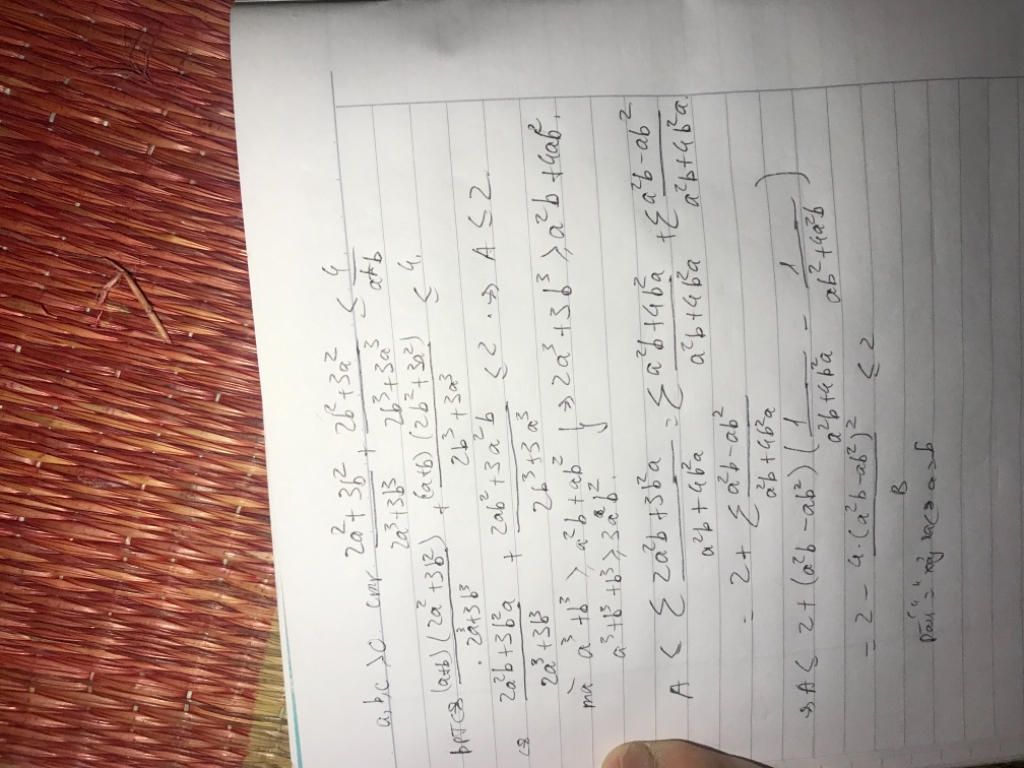 a,b,c >0 cmr (2a²+3b²)/(2a³+3b³) + (2b²+3a²)/(2b³+3a³) ≤ 4/(a+b)
bpt ⇔ (a+b)(2a²+3b²)/(2a³+3b³) + (a+b)(2b²+3a²)/(2b³+3a³) ≤ 4.
⇔ (2a²b+3b²a)/(2a³+3b³) + (2ab²+3a²b)/(2b³+3a³) ≤ 2 . → A ≤ 2.
mà a³+b³ ≥ a²b+ab²
a³+b³+b³ ≥ 3ab². } → 2a³+3b³ ≥ a²b+4ab².
A < Σ (2a²b+3b²a)/(a²b+4b²a) = Σ (a²b+4b²a)/(a²b+4b²a) + Σ (a²b-ab²)/(a²b+4b²a)
= 2 + Σ (a²b-ab²)/(a²b+4b²a)
→ A ≤ 2 + (a²b-ab²)(1/(a²b+4b²a) - 1/(ab²+4a²b))
= 2 - 4.(a²b-ab²)²/B ≤ 2
Dấu "=" xảy ra ⇔ a=b